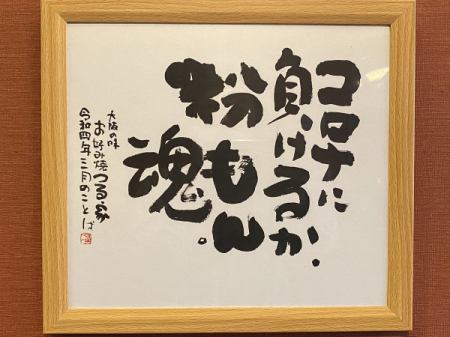 コロナに
負けるか.
粉もん
魂。
大阪の味
お好み焼つる家
令和四年三月のことば